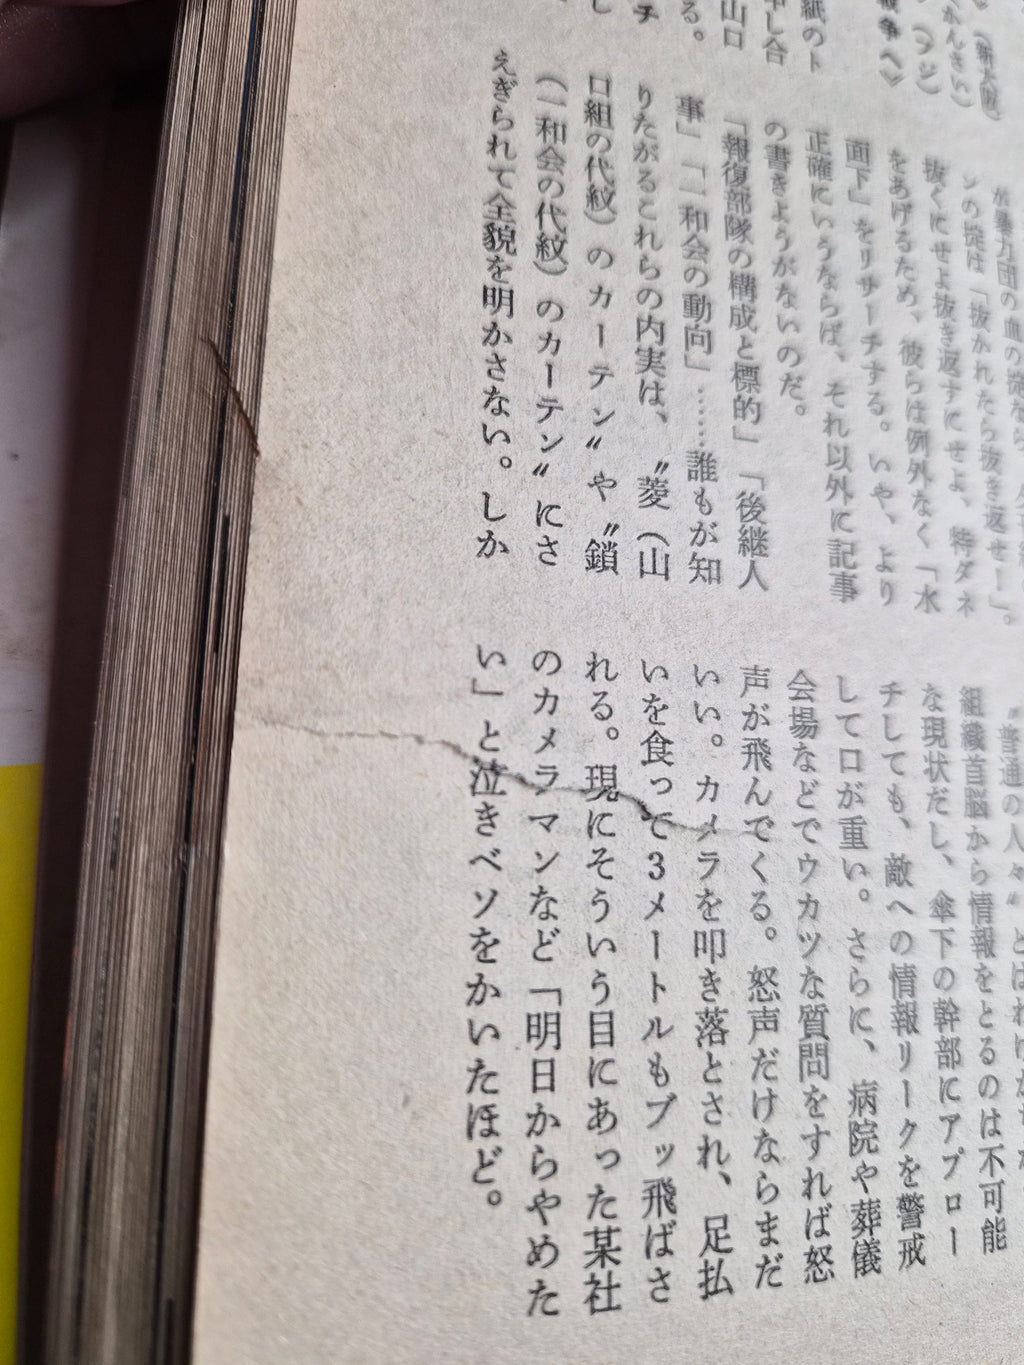 紙のト
申し合
山口
る。
チ
し
(新大阪)
ンの掟は「抜かれたら抜き返せ！」。
抜くにせよ抜き返すにせよ、特ダネ
をあげるため、彼らは例外なく「水
面下」をリサーチする。いや、より
正確にいうならば、それ以外に記事
の書きようがないのだ。
「報復部隊の構成と標的」「後継人
事」「一和会の動向」……誰もが知
りたがるこれらの内実は、〝菱（山
口組の代紋）のカーテン〟や〝鎖
（一和会の代紋）のカーテン〟にさ
えぎられて全貌を明かさない。しか
〝普通の人々〟とはわけがちがう
組織首脳から情報をとるのは不可能
な現状だし、傘下の幹部にアプロー
チしても、敵への情報リークを警戒
して口が重い。さらに、病院や葬儀
会場などでウカツな質問をすれば怒
声が飛んでくる。怒声だけならまだ
いい。カメラを叩き落とされ、足払
いを食って3メートルもブッ飛ばさ
れる。現にそういう目にあった某社
のカメラマンなど「明日からやめた
い」と泣きベソをかいたほど。